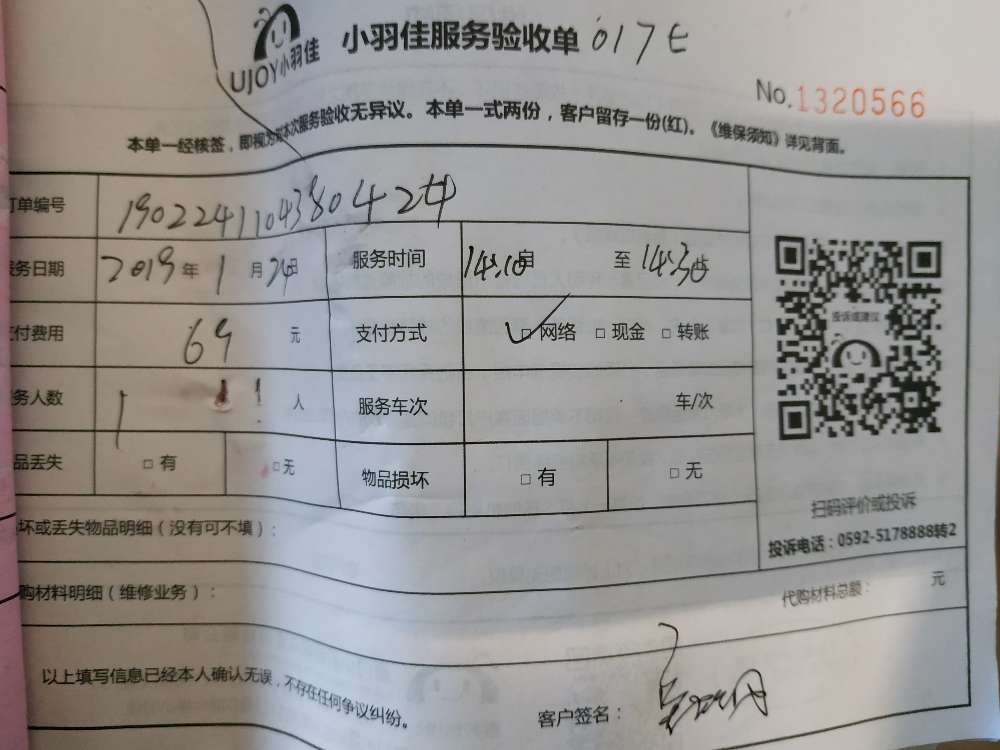 UJOY小羽佳
小羽佳服务验收单 017E
No.1320566
本单一经核签，即视为对本次服务验收无异议。本单一式两份，客户留存一份(红)。《维保须知》详见背面。
订单编号
服务日期 2019年1月24日 服务时间 14:10 自 至 14:30
支付费用 69 元 支付方式 □网络 □现金 □转账
服务人数 1 人 服务车次 车/次
物品丢失 □有 □无 物品损坏 □有 □无
投诉或建议
扫码评价或投诉
投诉电话：0592-5178888转2
损坏或丢失物品明细（没有可不填）：
代购材料明细（维修业务）： 代购材料总额： 元
以上填写信息已经本人确认无误，不存在任何争议纠纷。
客户签名：